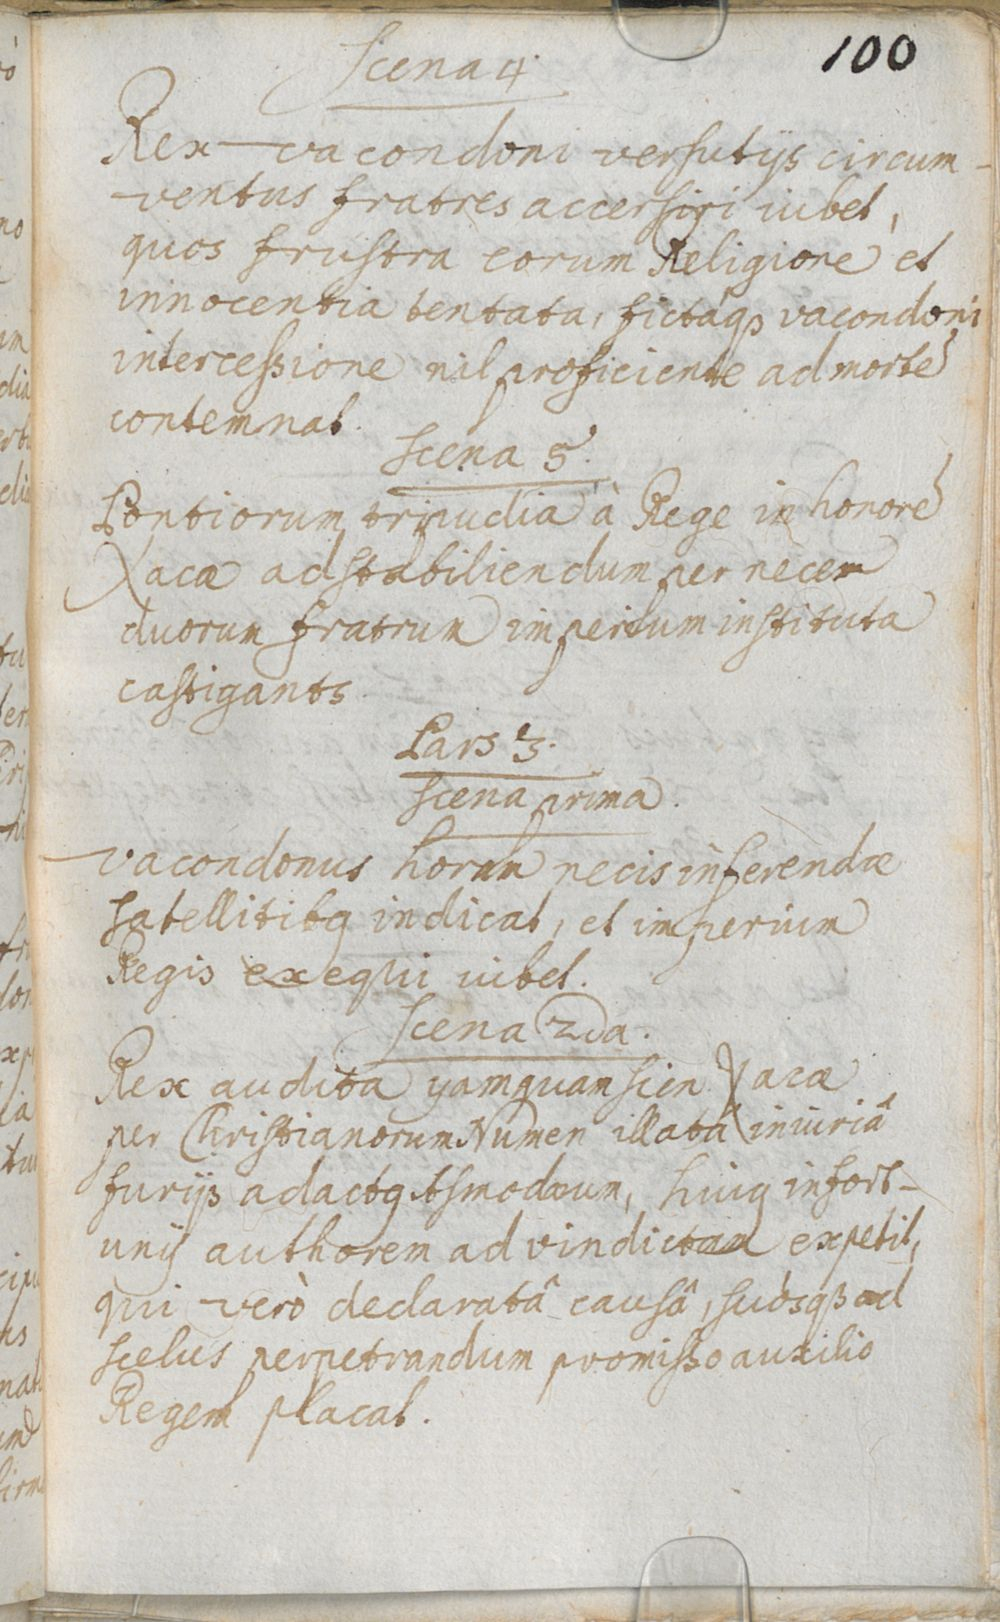 100
Scena 4.
Rex vacondoni versutijs circum-
ventus fratres accersiri iubet,
quos frustra eorum Religione et
innocentia tentata, fictaq₃ vacondoni
intercessione nil proficiente ad mortē
contemnat.
Scena 5.
Pontiorum tripudia à Rege in honorē
Xacæ ad stabiliendum per necem
duorum fratrum imperium instituta
castigants
Pars 3.
Scena prima.
vacondonus horam necis inferendæ
satellitibq indicat, et imperium
Regis exequi iubet.
Scena 2da.
Rex audita yamquansien Xacæ
per Christianorum Numen illatâ iniuriâ
furijs adactq tsmodœum, huiq infort-
unij authorem ad vindictam expetit,
qui verò declaratâ causâ, suòsq₃ ad
scelus perpetrandum promisso auxilio
Regem placat.